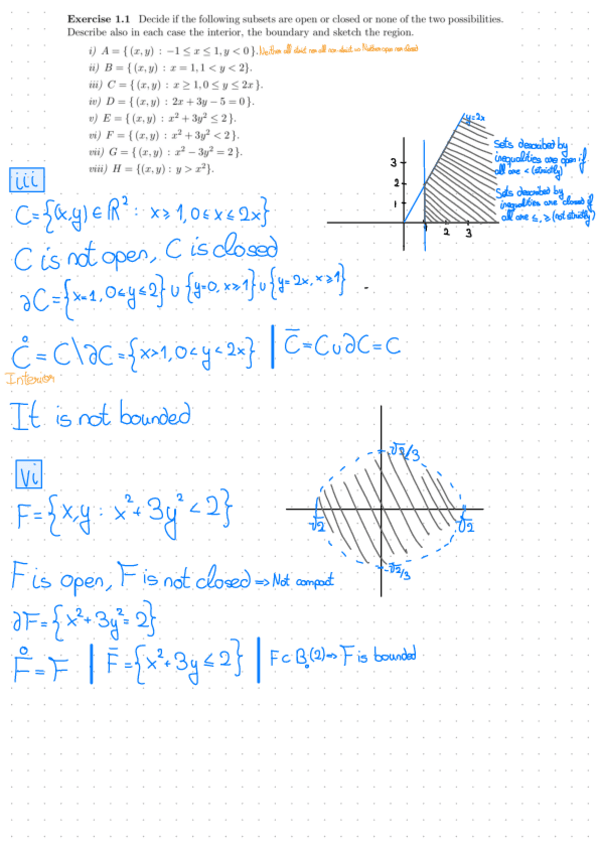 Exercise 1.1 Decide if the following subsets are open or closed or none of the two possibilities.
Describe also in each case the interior, the boundary and sketch the region.
i) A = { (x, y) : −1 ≤ x ≤ 1, y < 0 }. Neither all strict nor all non-strict => Neither open nor closed
ii) B = { (x, y) : x = 1, 1 < y < 2}.
iii) C = { (x, y) : x ≥ 1, 0 ≤ y ≤ 2x }.
iv) D = { (x, y) : 2x + 3y − 5 = 0 }.
v) E = { (x, y) : x² + 3y² < 2 }.
vi) F = { (x, y) : x² + 3y² < 2 }.
vii) G = { (x, y) : x² − 3y² = 2 }.
viii) H = {(x, y) : y > x²}.
y=2x
Sets described by
inequalities are open if
all are < (strictly)
Sets described by
inequalities are closed if
all are ≤, ≥ (not strictly)
3
2
1
1 2 3
iii
C={(x,y) ∈ ℝ² : x≥1, 0≤x≤2x}
C is not open, C is closed
∂C={x=1, 0≤y≤2} ∪ {y=0, x≥1} ∪ {y=2x, x≥1}
C̊ = C\∂C = {x>1, 0<y<2x} | C̄=C∪∂C=C
Interior
It is not bounded
vi
F={x,y : x²+3y²<2}
√2/3
√2
√2
-√2/3
F is open, F is not closed => Not compact
∂F={x²+3y²=2}
F̊=F | F̄={x²+3y≤2} | F⊂B₀(2)=> F is bounded